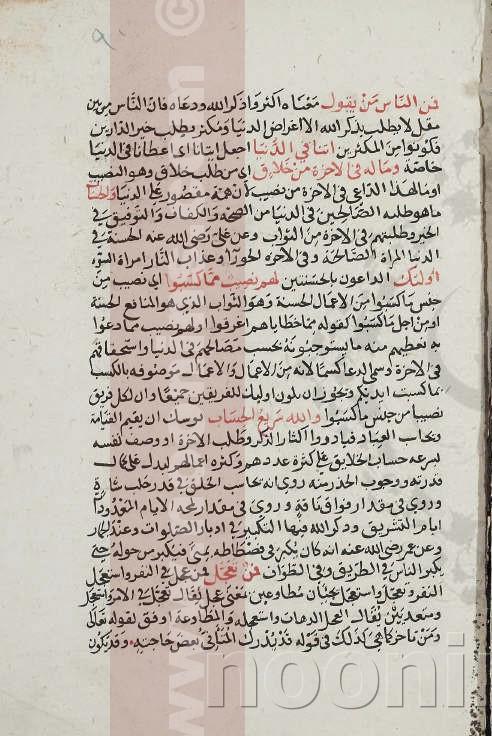 فمن الناس من يقول معناه اكثروا ذكر الله ودعاه فان الناس من بين
مقل لا يطلب بذكر الله الا اغراض الدنيا ومكثر يطلب خير الدارين
فكونوا من المكثرين اتنا في الدنيا اجعل ايتانا اى اعطانا في الدنيا
خاصة وما له في الاخرة من خلاق اى من طلب خلاق وهو النصيب
او ما لهذا الداعي في الاخرة من نصيب لان همه مقصور على الدنيا والحسنتان
ما هو طلبه الصالحين في الدنيا من الصحة والكفاف والتوفيق في
الخير وطلبتهم في الاخرة من الثواب وعن علي رضي الله عنه الحسنة في
الدنيا المراة الصالحة وفي الاخرة الحورا وعذاب النار امراة السوء
اولئك الداعون بالحسنتين لهم نصيب مما كسبوا اى نصيب من
جنس ما كسبوا من الاعمال الحسنة وهو الثواب الذي هو المنافع الحسنة
او من اجل ما كسبوا كقوله مما خطاياهم اغرقوا او لهم نصيب مما دعوا
به نعطيهم منه ما يستوجبونه بحسب مصالحهم في الدنيا واستحقاقهم
في الاخرة وسمى الدعا كسبا لانه من الاعمال والاعمال موصوفة بالكسب
بما كسبت ايديكم ويجوز ان يكون اوليك للفريقين جميعا وان لكل فريق
نصيبا من جنس ما كسبوا والله سريع الحساب يوشك ان يقيم القيامة
ويحاسب العباد فبادروا اكثار الذكر وطلب الاخرة او وصف نفسه
بسرعه حساب الخلايق على كثرة عددهم وكثرة اعمالهم ليدل على كمال
قدرته ووجوب الحذر منه روي انه يحاسب الخلق في قدر حلب شاة
وروي في مقدار فواق ناقة وروي في مقدار لمحه الايام المعدودات
ايام التشريق وذكر الله فيها التكبير في ادبار الصلوات وعند الجمار
وعن عمر رضي الله عنه انه كان يكبر في فسطاطه بمنى فيكبر من حوله حتى
يكبر الناس في الطريق وفي الطواف فمن تعجل فمن عجل في النفر او استعجل
النفر وتعجل واستعجل يجيئان مطاوعين بمعنى عجل يقال تعجل في الامر واستعجل
ومتعديين يقال تعجل الذهاب واستعجله والمطاوعة اوفق لقوله تعالى
ومن تاخر كما هي كذلك في قوله قد يدرك المتأني بعض حاجته وقد يكون
www.nooni
nooni